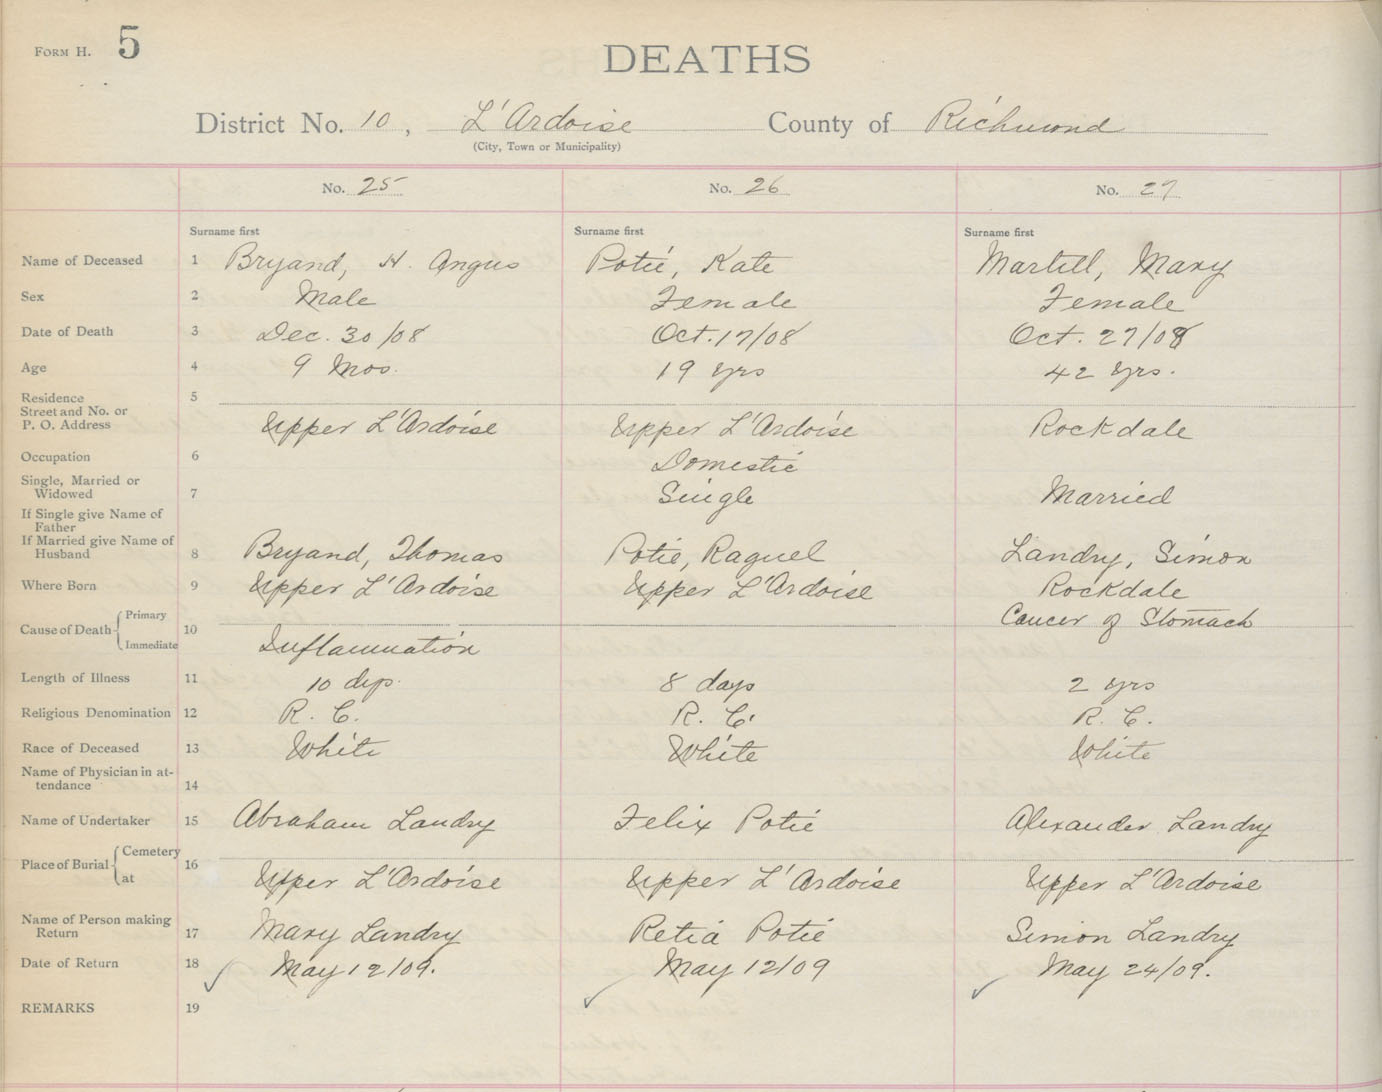 FORM H. 5
DEATHS
District No. 10, L'Ardoise County of Richmond
(City, Town or Municipality)
No. 25 No. 26 No. 27
Surname first Surname first Surname first
Name of Deceased 1 Bryand, H. Angus Potié, Kate Martell, Mary
Sex 2 Male Female Female
Date of Death 3 Dec. 30/08 Oct. 17/08 Oct. 27/08
Age 4 9 Mos. 19 yrs 42 yrs.
Residence 5
Street and No. or
P. O. Address Upper L'Ardoise Upper L'Ardoise Rockdale
Occupation 6 Domestic
Single, Married or
Widowed 7 Single Married
If Single give Name of
Father
If Married give Name of
Husband 8 Bryand, Thomas Potié, Raguel Landry, Simon
Where Born 9 Upper L'Ardoise Upper L'Ardoise Rockdale
Cause of Death Primary 10 Cancer of Stomach
Immediate Inflammation
Length of Illness 11 10 dys. 8 days 2 yrs
Religious Denomination 12 R. C. R. C. R. C.
Race of Deceased 13 White White White
Name of Physician in at-
tendance 14
Name of Undertaker 15 Abraham Landry Felix Potié Alexander Landry
Place of Burial Cemetery 16
at Upper L'Ardoise Upper L'Ardoise Upper L'Ardoise
Name of Person making
Return 17 Mary Landry Retia Potié Simon Landry
Date of Return 18 May 12/09. May 12/09 May 24/09.
REMARKS 19